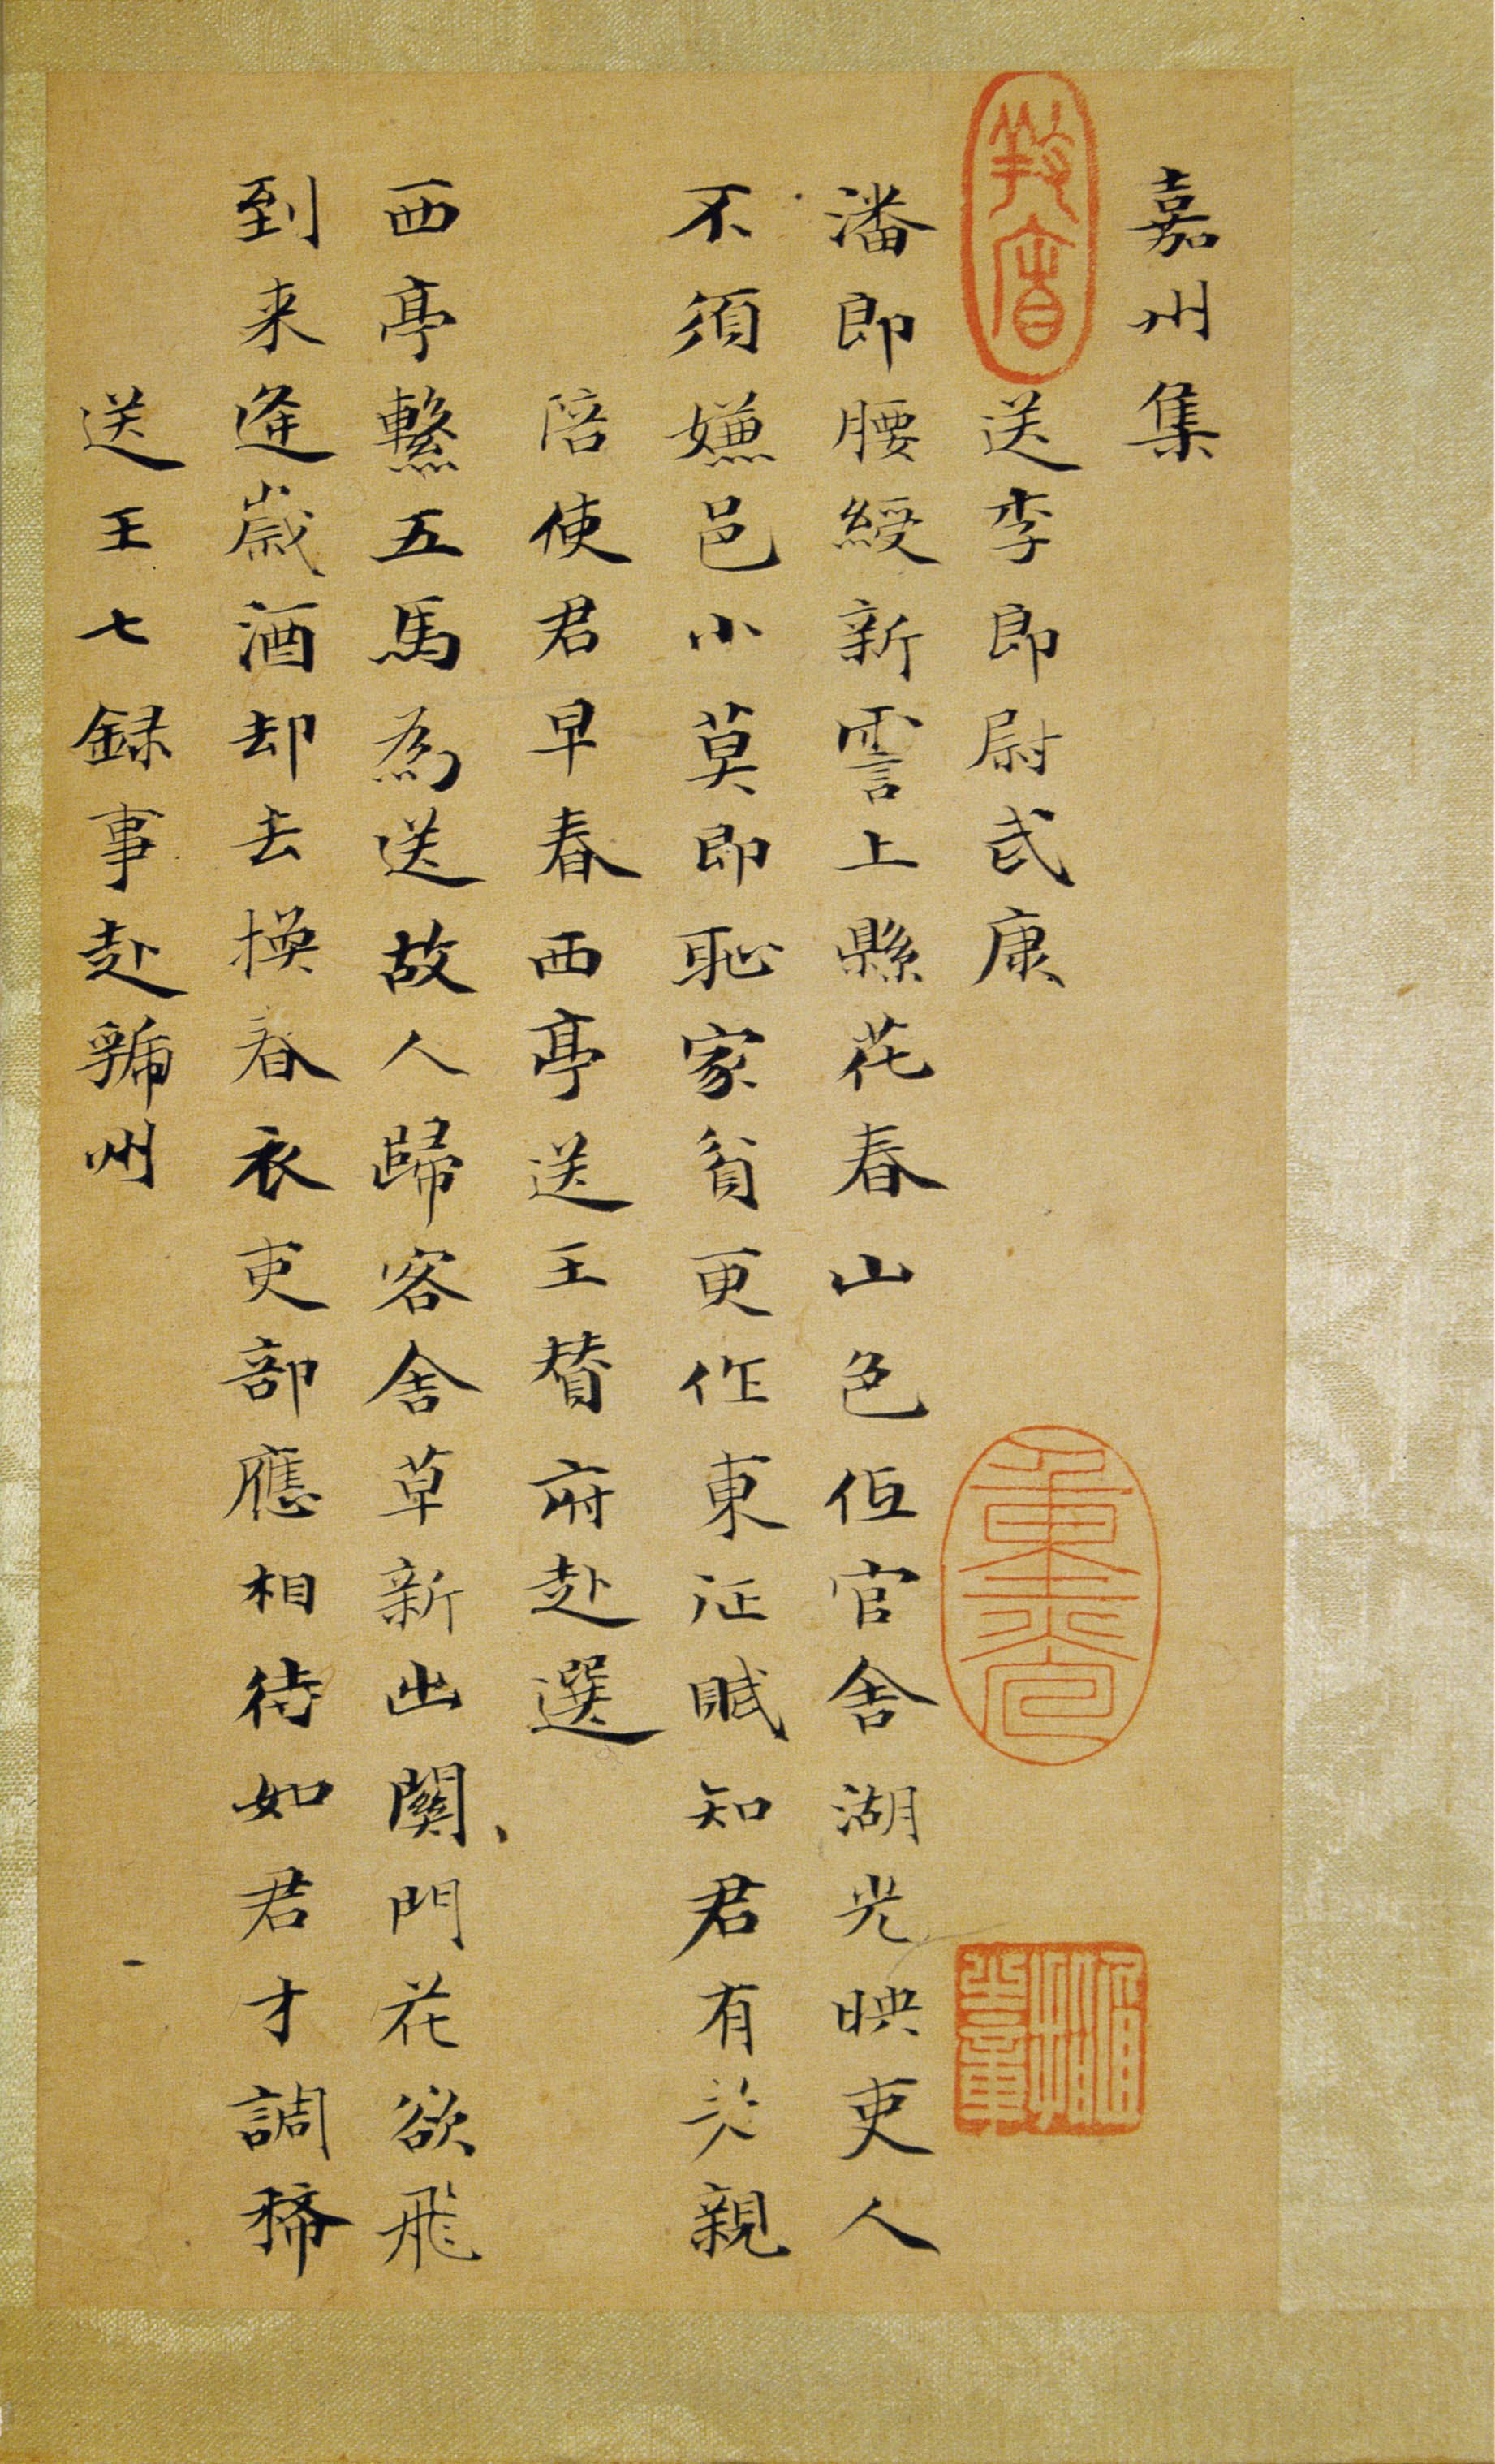 嘉州集
送李郎尉武康
潘郎腰綬新霅上縣花春山色低官舍湖光映吏人
不須嫌邑小莫即恥家貧更作東征賦知君有老親
陪使君早春西亭送王賛府赴選
西亭繫五馬為送故人歸客舍草新出關門花欲飛
到来逢歲酒却去換春衣吏部應相待如君才調稀
送王七録事赴虢州